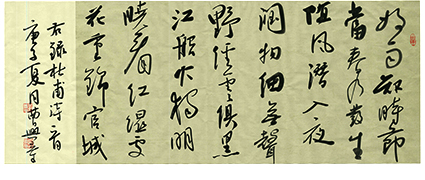 好雨知時節
當春乃發生
隨風潛入夜
潤物細無聲
野徑雲俱黑
江船火獨明
曉看紅濕處
花重錦官城
右錄杜甫詩一首
庚子夏月